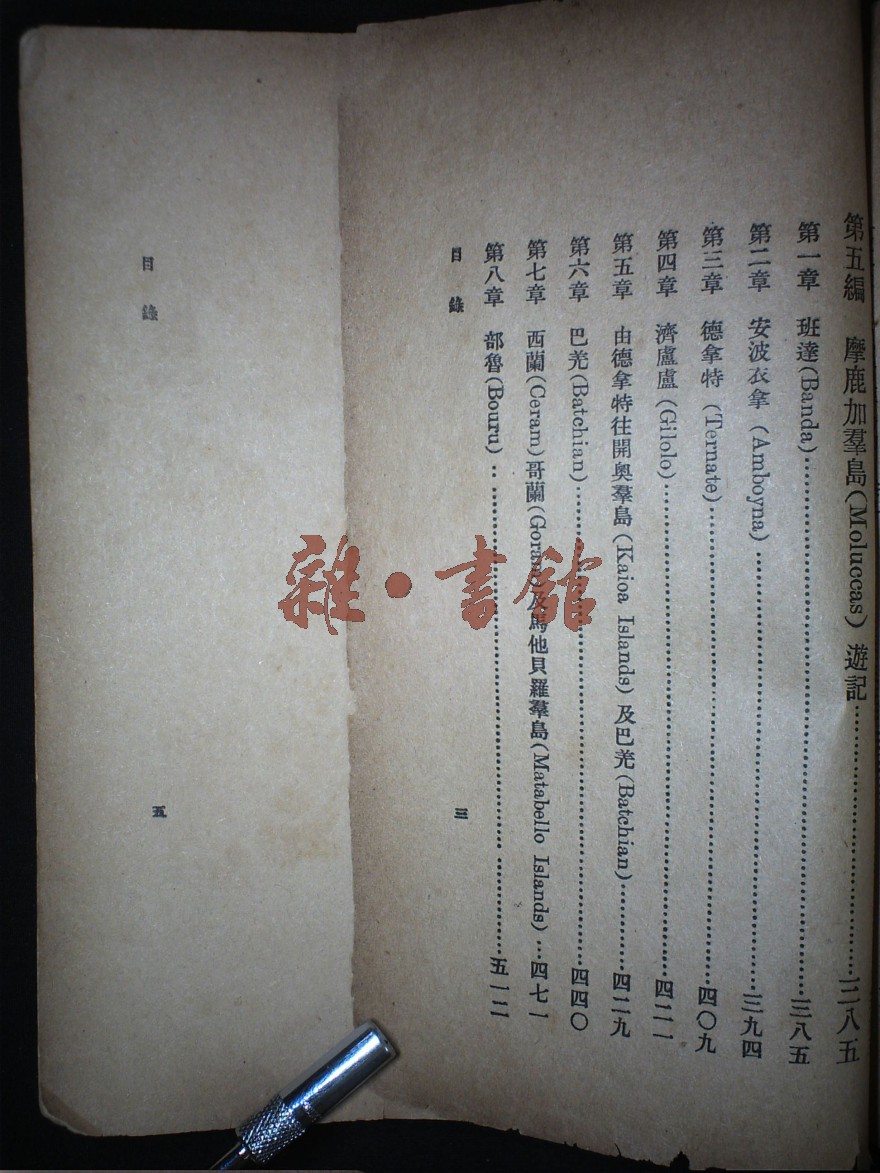 第五編　摩鹿加羣島(Moluccas) 遊記……………………三八五
第一章　班達(Banda)……………………三八五
第二章　安波衣拿 (Amboyna)……………………三九四
第三章　德拿特 (Ternate)……………………四〇九
第四章　濟盧盧 (Gilolo)……………………四二一
第五章　由德拿特往開奥羣島 (Kaioa Islands) 及巴羌(Batchian)…………四二九
第六章　巴羌(Batchian)……………………四四〇
第七章　西蘭(Ceram)哥蘭(Goram)及馬他貝羅羣島(Matabello Islands)…四七一
第八章　部魯(Bouru)……………………五一二
目錄　三
目錄　五
雜·書館